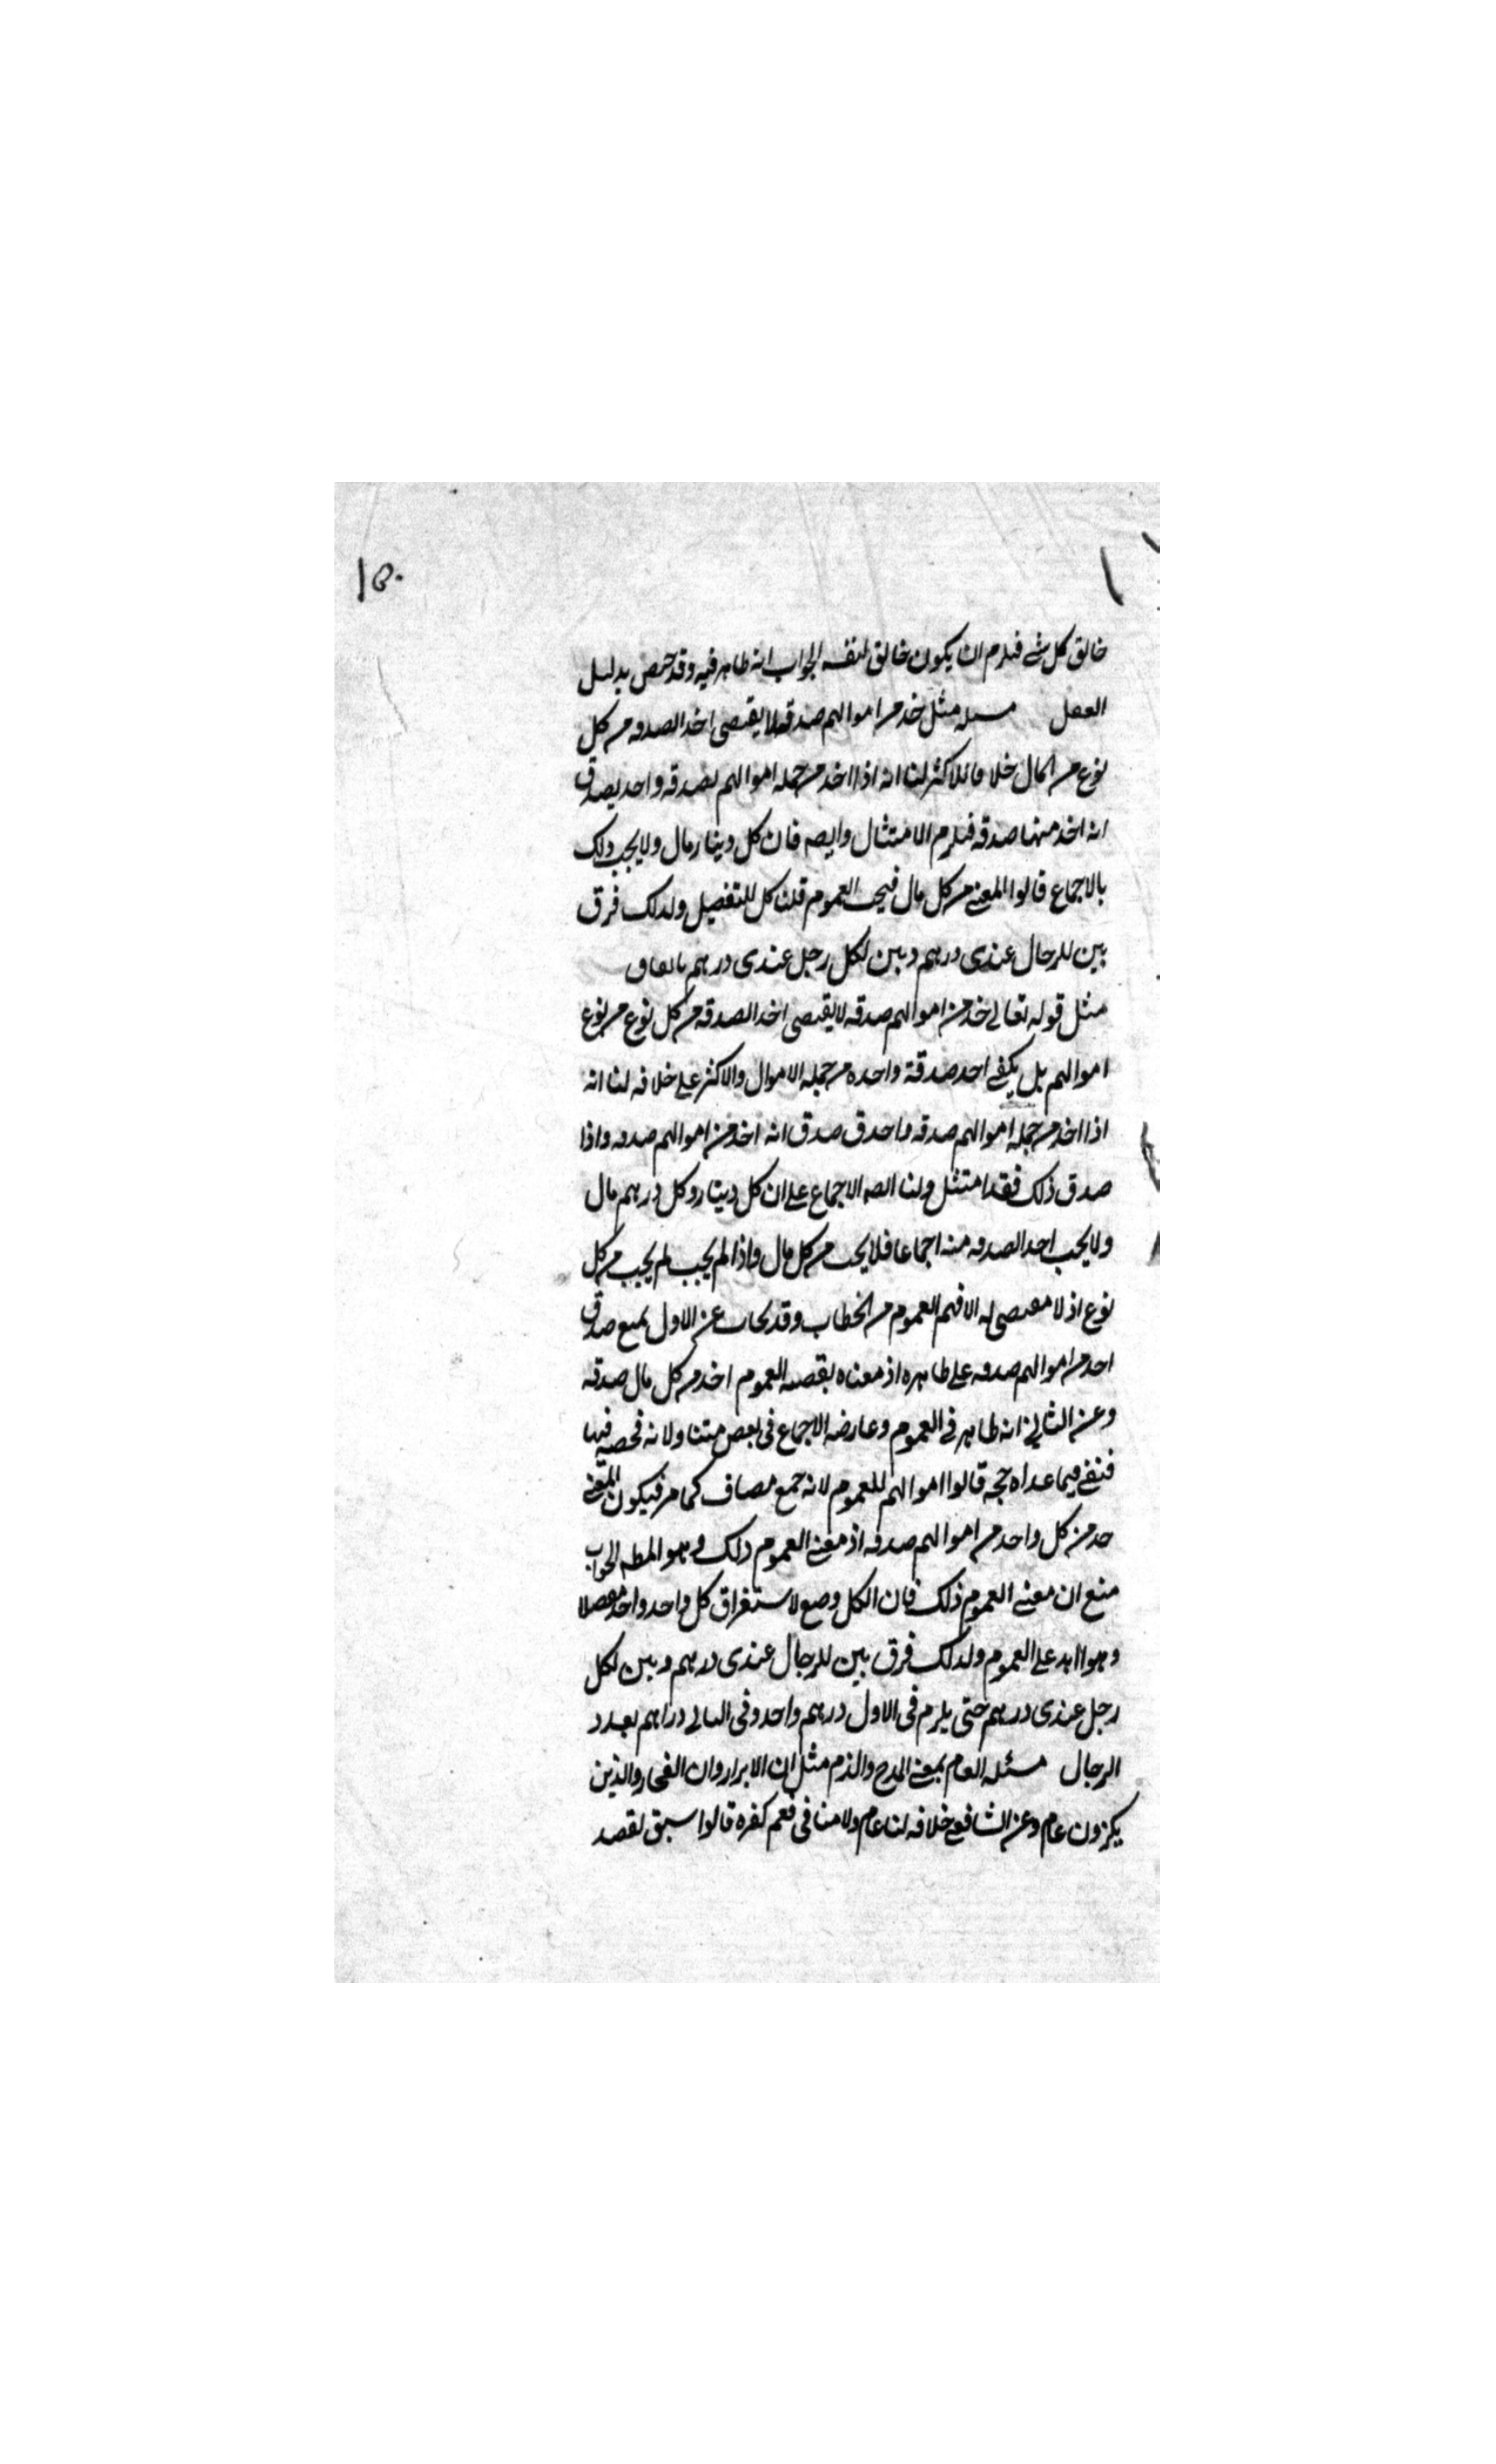 ١٥٠
خالق كل شئ فيلزم ان يكون خالق لنفسه الجواب انه ظاهر فيه وقد خص بدليل
العقل مسئله مثل خذ من اموالهم صدقة لا يقتضى اخذ الصدقه من كل
نوع من المال خلافا للاكثر لنا انه اذا اخذ من جمله اموالهم صدقه واحد يصدق
انه اخذ منها صدقه فيلزم الامتثال وايضه فان كل دينار مال ولا يجب ذلك
بالاجماع قالوا المعنى من كل مال فيجب العموم قلنا كل للتفصيل ولذلك فرق
بين للرجال عندى درهم وبين لكل رجل عندى درهم باتفاق
مثل قوله تعالى خذ من اموالهم صدقه لا يقتضى اخذ الصدقه من كل نوع من نوع
اموالهم بل يكفى اخذ صدقة واحده من جمله الاموال والاكثر على خلافه لنا انه
اذا اخذ من جمله اموالهم صدقه واحدق صدق انه اخذ من اموالهم صدقه واذا
صدق ذلك فقد امتثل ولنا ايضه الاجماع على ان كل دينار وكل درهم مال
ولا يجب اخذ الصدقه منه اجماعا فلا يجب من كل مال واذا لم يجب لم يجب من كل
نوع اذ لا مقتضى له الا فهم العموم من الخطاب وقد يجاب عن الاول بمنع صدق
اخذ من اموالهم صدقه على ظاهره اذ معناه بقضيه العموم اخذ من كل مال صدقه
وعن الثانى انه ظاهر فى العموم وعارضه الاجماع فى بعض متناولاته فخصه فيها
فبقى فيما عداه حجه قالوا اموالهم للعموم لانه جمع مضاف كما مر فيكون المعنى
خذ من كل واحد من اموالهم صدقه اذ معنى العموم ذلك وهو المط الجواب
منع ان معنى العموم ذلك فان الكل وضع لاستغراق كل واحد واحد مفصلا
وهو زايد على العموم ولذلك فرق بين للرجال عندى درهم وبين لكل
رجل عندى درهم حتى يلزم فى الاول درهم واحد وفى الثانى دراهم بعدد
الرجال مسئله العام بمعنى المدح والذم مثل ان الابرار وان الفجار والذين
يكنزون عام وعن الشافعى خلافه لنا عام ولا منافى فعم كغيره قالوا سيق لقصد